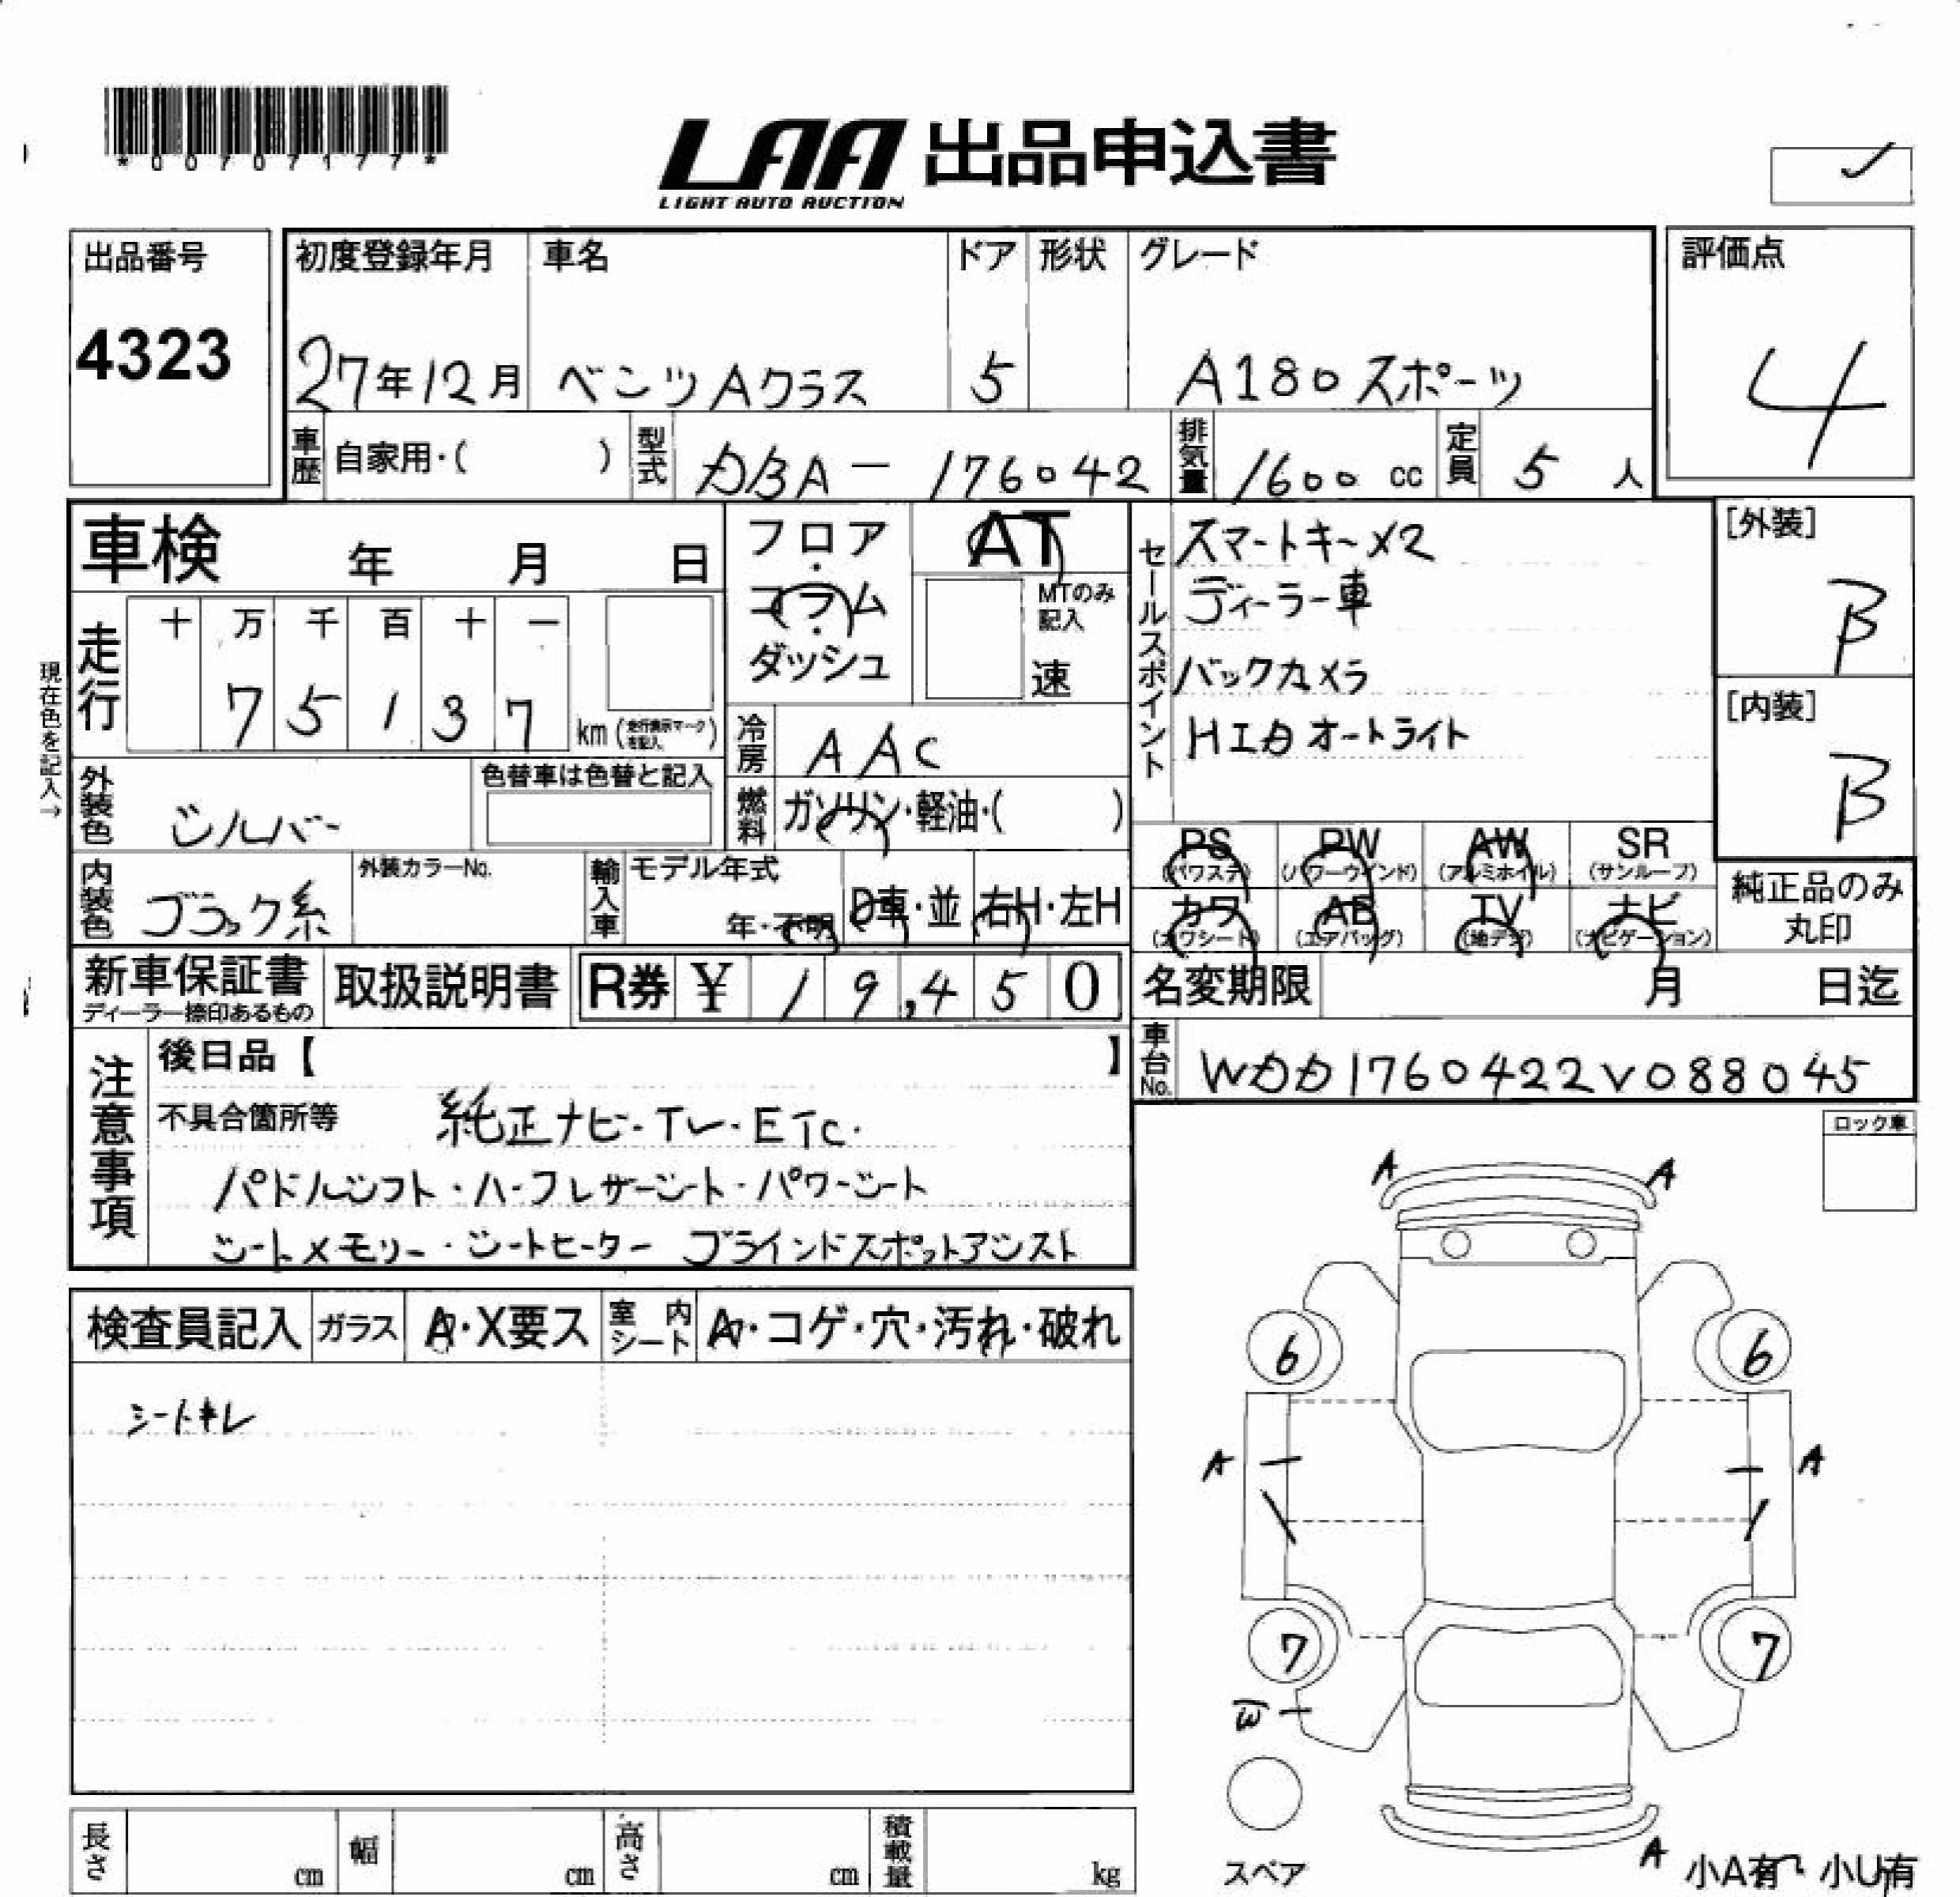 *00707177*
LAA 出品申込書
LIGHT AUTO AUCTION
出品番号 初度登録年月 車名 ドア 形状 グレード 評価点
4323 27年12月 ベンツAクラス 5 A180スポーツ 4
車歴 自家用・( ) 型式 DBA-176042 排気量 1600 cc 定員 5 人
車検 年 月 日
フロア・コラム・ダッシュ
AT
MTのみ記入
速
セールスポイント
スマートキー×2
ディーラー車
バックカメラ
HID オートライト
[外装]
B
[内装]
B
現在色を記入→
走行 十 万 千 百 十 一
7 5 1 3 7 km (走行表示マークを記入)
冷房 AAC
外装色 シルバー 色替車は色替と記入
燃料 ガソリン・軽油・( )
PS (パワステ) PW (パワーウインド) AW (アルミホイル) SR (サンルーフ)
カワ (カワシート) AB (エアバッグ) TV (地デジ) ナビ (ナビゲーション)
純正品のみ丸印
内装色 ブラック系 外装カラーNo. 輸入車 モデル年式
年・不明 D車・並 右H・左H
新車保証書 取扱説明書 R券 ¥ 19,450
ディーラー捺印あるもの
名変期限 月 日迄
車台No. WDD1760422V088045
注意事項
後日品【 】
不具合箇所等 純正ナビ・TV・ETC・
パドルシフト・ハーフレザーシート・パワーシート
シートメモリー・シートヒーター ブラインドスポットアシスト
ロック車
検査員記入 ガラス A・X要ス 室内シート A・コゲ・穴・汚れ・破れ
シートキレ
A A
6 6
A A
7 7
W
スペア
A 小A有 小U有
長さ cm 幅 cm 高さ cm 積載量 kg